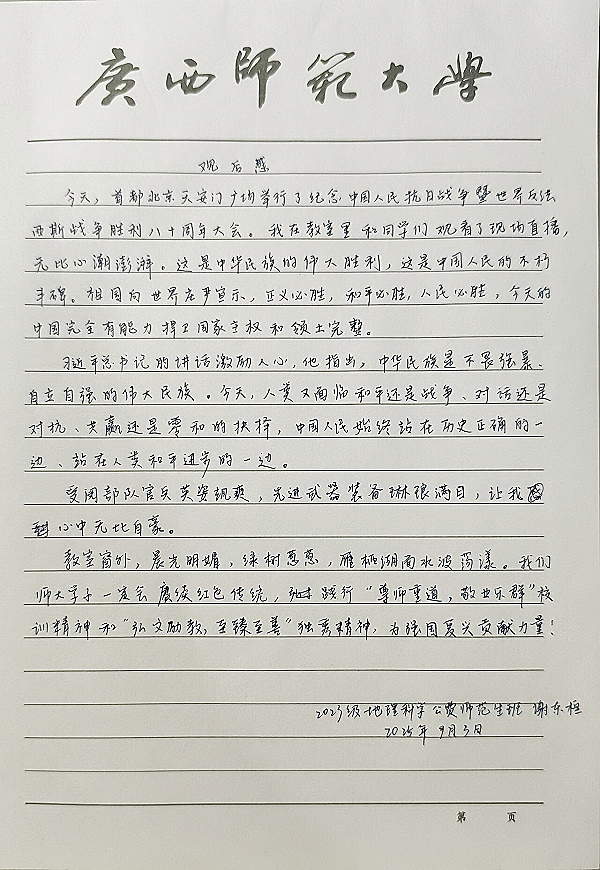 廣西師範大學
观后感
今天，首都北京天安门广场举行了纪念中国人民抗日战争暨世界反法
西斯战争胜利八十周年大会。我在教室里和同学们观看了现场直播，
无比心潮澎湃。这是中华民族的伟大胜利，这是中国人民的不朽
丰碑。祖国向世界庄严宣示，正义必胜，和平必胜，人民必胜，今天的
中国完全有能力捍卫国家主权和领土完整。
习近平总书记的讲话激励人心，他指出，中华民族是不畏强暴、
自立自强的伟大民族。今天，人类又面临和平还是战争、对话还是
对抗、共赢还是零和的抉择，中国人民始终站在历史正确的一
边、站在人类和平进步的一边。
受阅部队官兵英姿飒爽，先进武器装备琳琅满目，让我
心中无比自豪。
教室窗外，晨光明媚，绿树葱葱，雁栖湖面水波荡漾。我们
师大学子一定会赓续红色传统，践行“尊师重道，敬业乐群”校
训精神和“弘文励教，至臻至善”独秀精神，为强国复兴贡献力量！
2023级地理科学公费师范生班 谢东桓
2025年9月3日
第 页